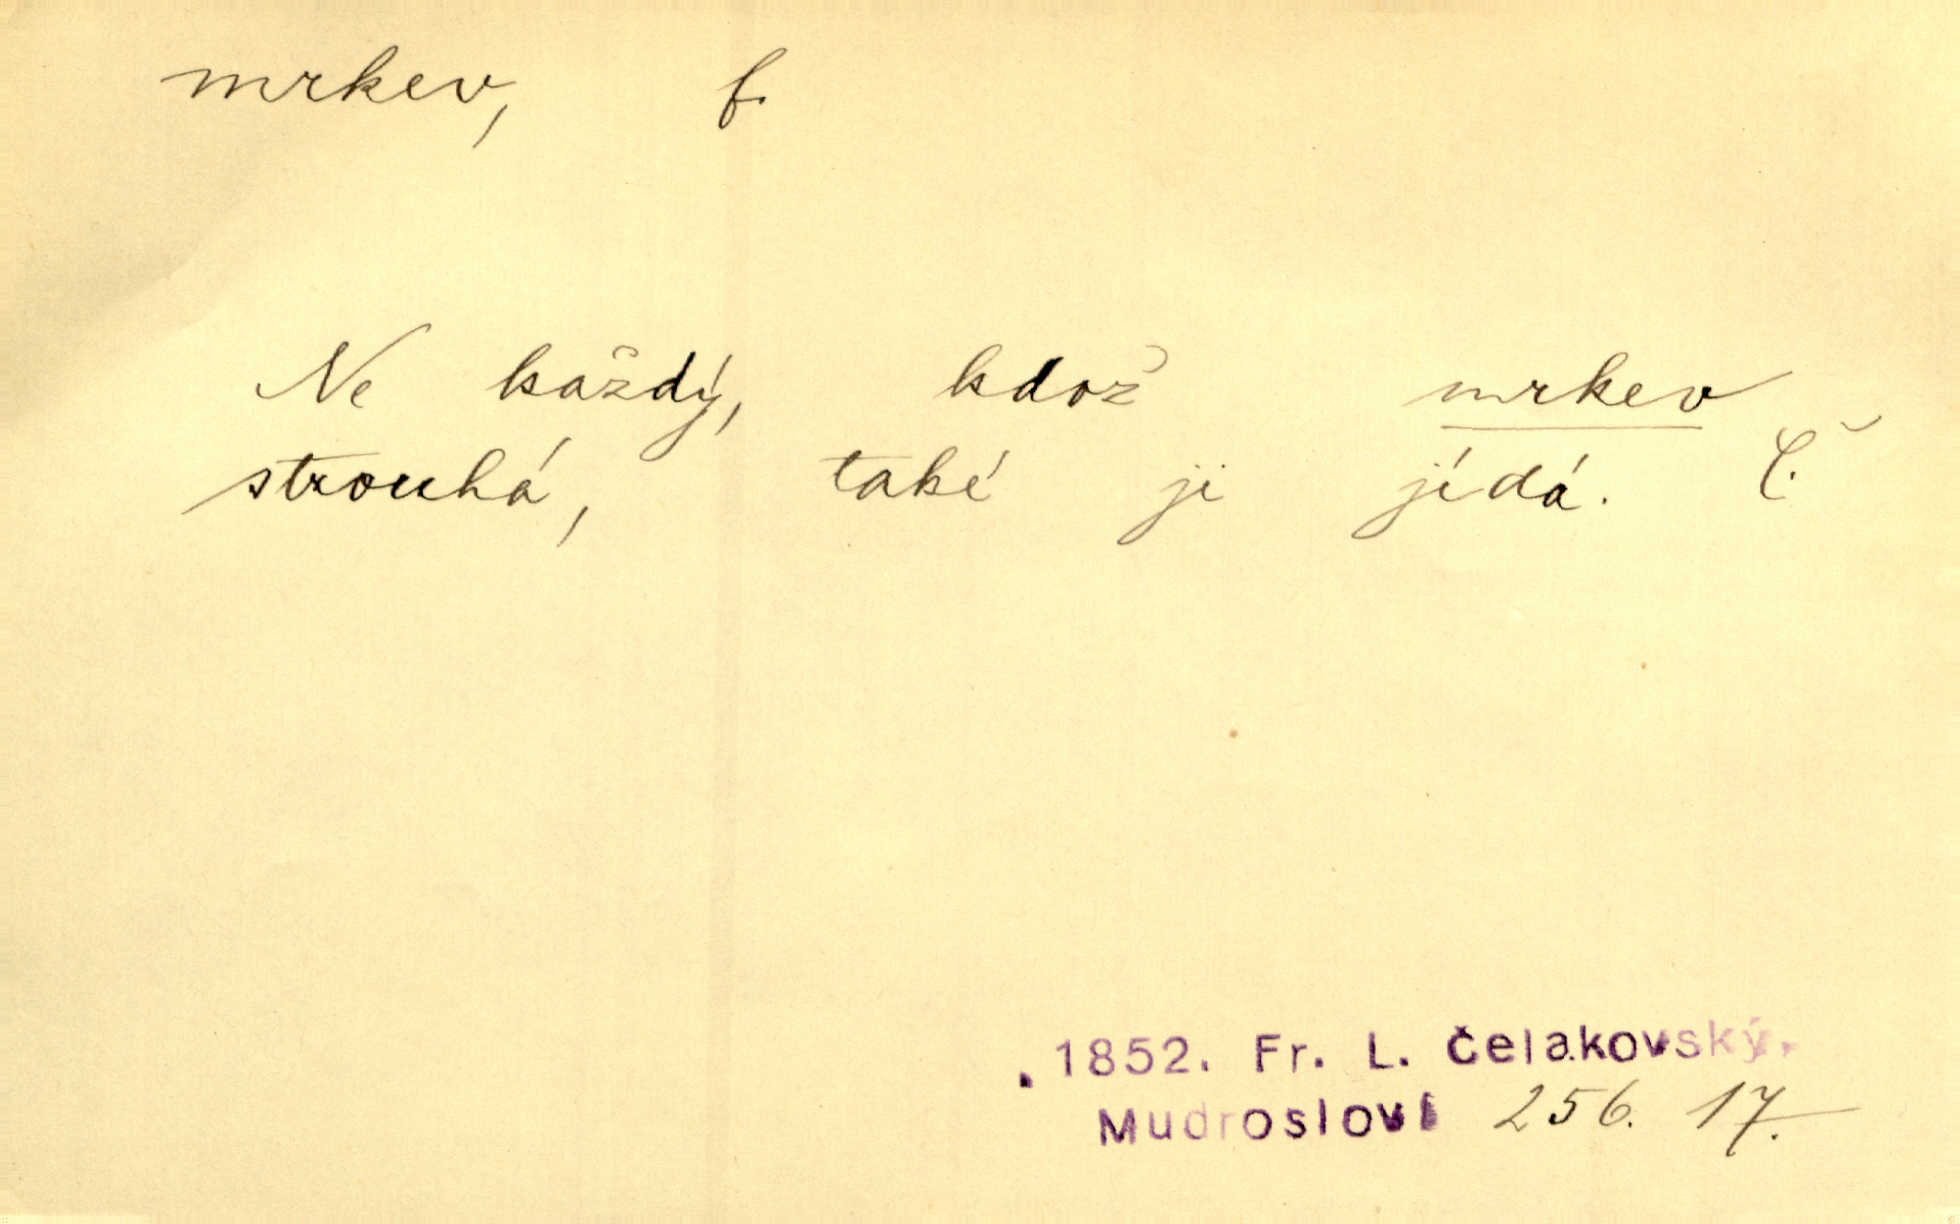 mrkev, f.
Ne každý, kdož mrkev
strouhá, také ji jídá. Č.
1852. Fr. L. Čelakovský.
Mudrosloví 256. 17.